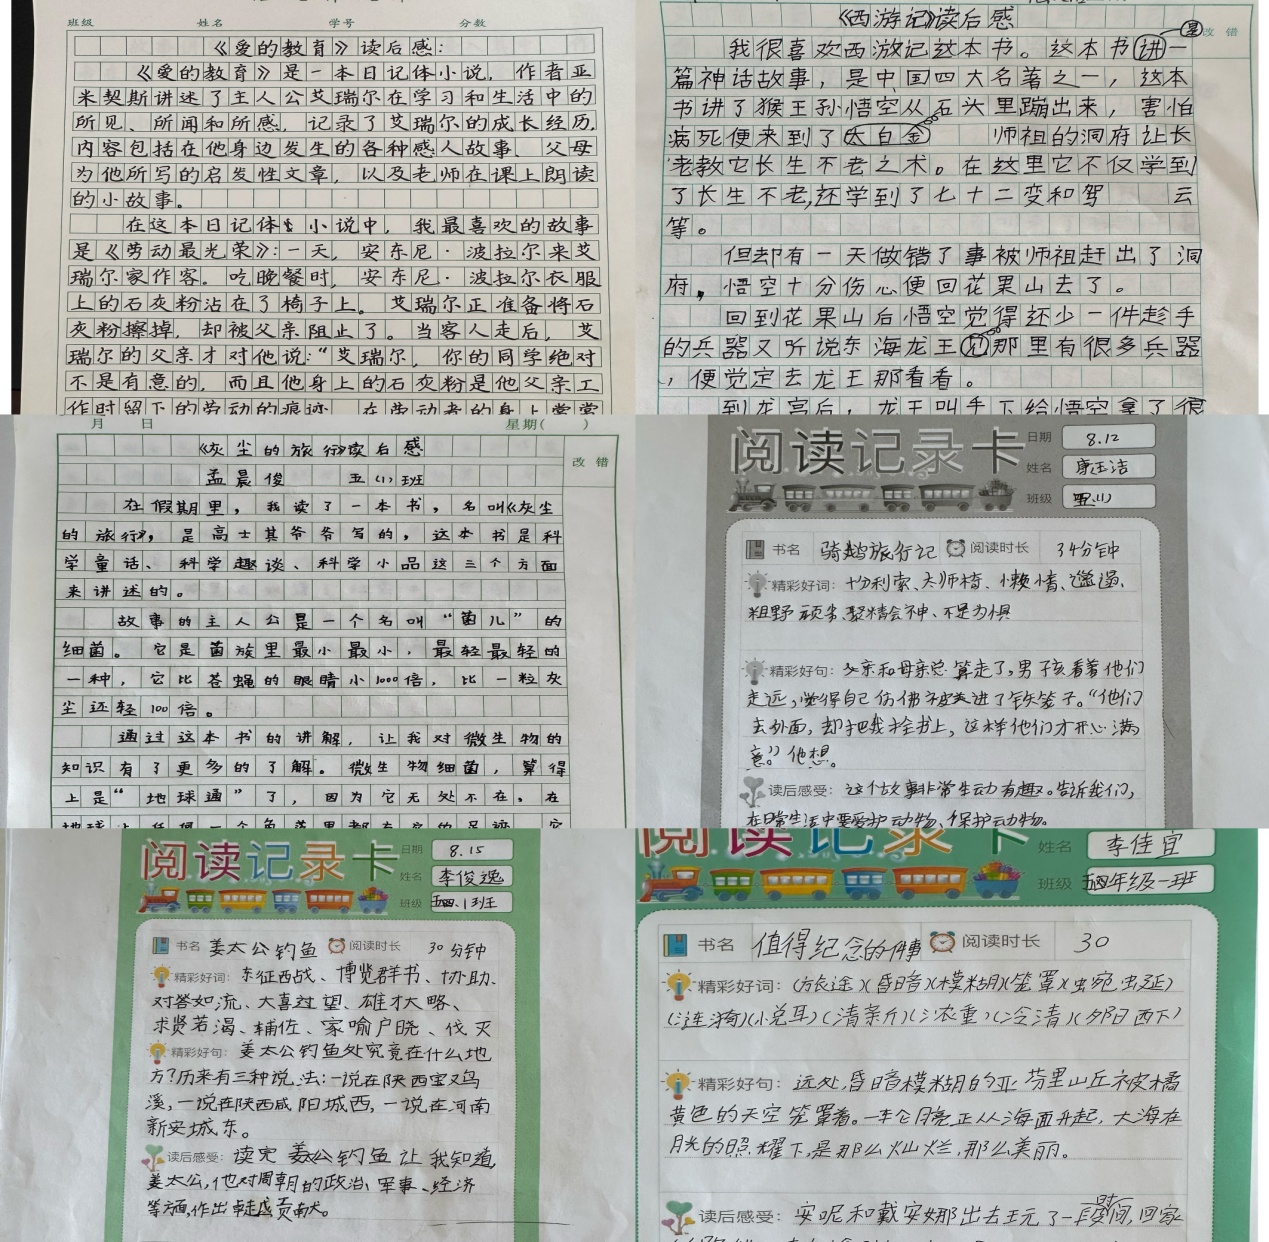 班级 姓名 学号 分数
《爱的教育》读后感：
《爱的教育》是一本日记体小说，作者亚
米契斯讲述了主人公艾瑞尔在学习和生活中的
所见、所闻和所感，记录了艾瑞尔的成长经历，
内容包括在他身边发生的各种感人故事、父母
为他所写的启发性文章，以及老师在课上朗读
的小故事。
在这本日记体小说中，我最喜欢的故事
是《劳动最光荣》：一天，安东尼·波拉尔来艾
瑞尔家作客。吃晚餐时，安东尼·波拉尔衣服
上的石灰粉沾在了椅子上。艾瑞尔正准备将石
灰粉擦掉，却被父亲阻止了。当客人走后，艾
瑞尔的父亲才对他说：“艾瑞尔，你的同学绝对
不是有意的，而且他身上的石灰粉是他父亲工
作时留下的劳动的痕迹。在劳动者的身上常常
《西游记》读后感
是 改错
我很喜欢西游记这本书。这本书讲一
篇神话故事，是中国四大名著之一，这本
书讲了猴王孙悟空从石头里蹦出来，害怕
病死便来到了太白金 师祖的洞府让长
老教它长生不老之术。在这里它不仅学到
了长生不老，还学到了七十二变和驾 云
等。
但却有一天做错了事被师祖赶出了洞
府，悟空十分伤心便回花果山去了。
回到花果山后悟空觉得还少一件趁手
的兵器又听说东海龙王那里有很多兵器
，便觉定去龙王那看看。
到龙宫后，龙王叫手下给悟空拿了很
月 日 星期( )
改错
《灰尘的旅行》读后感
孟晨俊 五(1)班
在假期里，我读了一本书，名叫《灰尘
的旅行》，是高士其爷爷写的，这本书是科
学童话、科学趣谈、科学小品这三个方面
来讲述的。
故事的主人公是一个名叫“菌儿”的
细菌。它是菌族里最小最小，最轻最轻的
一种，它比苍蝇的眼睛小1000倍，比一粒灰
尘还轻100倍。
通过这本书的讲解，让我对微生物的
知识有了更多的了解。微生物细菌，算得
上是“地球通”了，因为它无处不在，在
阅读记录卡
日期 8.12
姓名 康玉洁
班级 四(1)
书名 骑鹅旅行记 阅读时长 34分钟
精彩好词：十分利索、大师椅、懒惰、邋遢、
粗野 顽劣、聚精会神、不足为惧
精彩好句：父亲和母亲总算走了，男孩看着他们
走远，觉得自己仿佛被关进了铁笼子。“他们
去外面，却把我拴书上，这样他们才开心满
意？”他想。
读后感受：这个故事非常生动有趣。告诉我们，
在日常生活中要爱护动物、保护动物。
阅读记录卡
日期 8.15
姓名 李俊逸
班级 四.1班
书名 姜太公钓鱼 阅读时长 30分钟
精彩好词：东征西战、博览群书、协助、
对答如流、大喜过望、雄才大略、
求贤若渴、辅佐、家喻户晓、伐灭
精彩好句：姜太公钓鱼处究竟在什么地
方？历来有三种说法：一说在陕西宝鸡
溪，一说在陕西咸阳城西，一说在河南
新安城东。
读后感受：读完姜公钓鱼让我知道，
姜太公，他对周朝的政治、军事、经济
等方面，作出卓越贡献。
阅读记录卡
姓名 李佳宜
班级 四年级一班
书名 值得纪念的件事 阅读时长 30
精彩好词：(旅途)(昏暗)(模糊)(笼罩)(蜿蜒)
(涟漪)(悦耳)(清新)(浓重)(冷清)(夕阳西下)
精彩好句：远处，昏暗模糊的亚芬里山丘被橘
黄色的天空笼罩着。一轮月亮正从海面升起，大海在
月光的照耀下，是那么灿烂，那么美丽。
读后感受：安妮和戴安娜出去玩了一段时间，回家